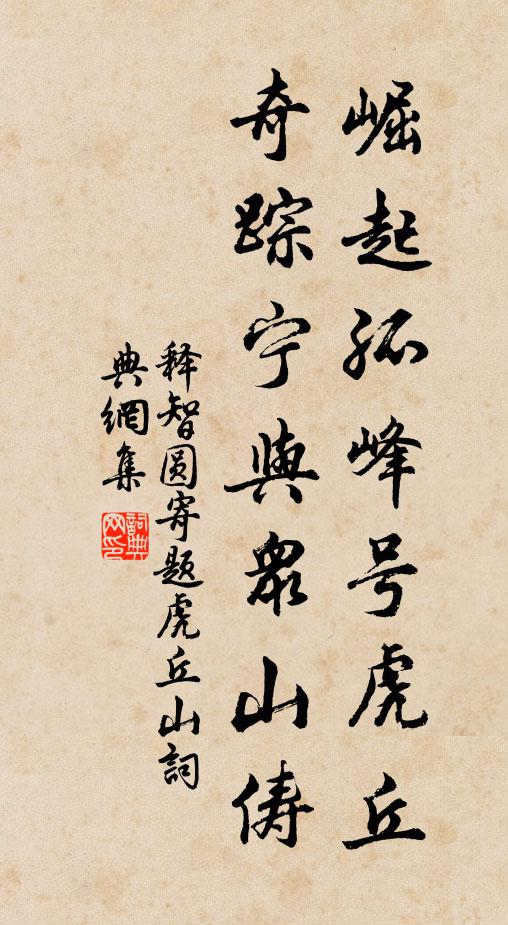 崛起孤峰号虎丘
奇踪宁與眾山儔
释智圆寄题虎丘山詞
典網集
詞典網印